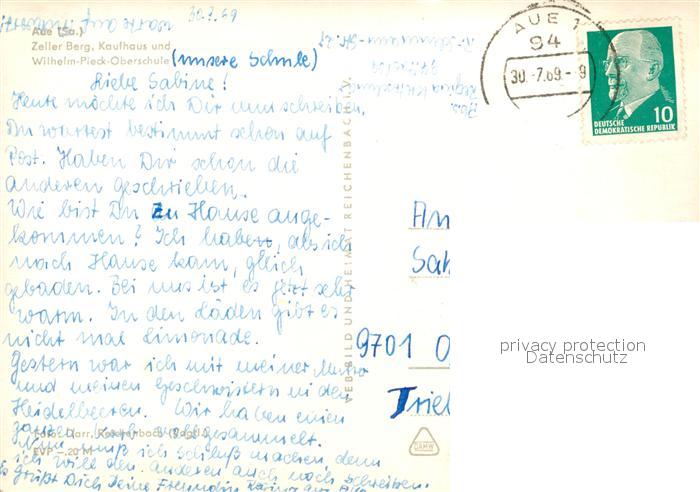 30.7.69
Aue (Sa.)
Zeller Berg, Kaufhaus und
Wilhelm-Pieck-Oberschule (unsere Schule)
Liebe Sabine!
Heute möchte ich Dir nun schreiben.
Du wartest bestimmt schon auf
Post. Haben Dir schon die
anderen geschrieben.
Wie bist Du zu Hause ange-
kommen? Ich habe, als ich
nach Hause kam, gleich
gebadet. Bei uns ist es jetzt sehr
warm. In den Läden gibt es
nicht mal Limonade.
Gestern war ich mit meiner Mutter
und meinen Geschwistern in den
Heidelbeeren. Wir haben einen
ganzen Korb vollgesammelt.
Nun muß ich Schluß machen, denn
ich will den anderen auch noch schreiben.
Es grüßt Dich Deine Freundin
Foto: Darr, Reichenbach (Vogtl.)
EVP -.20 M
VEB BILD UND HEIMAT REICHENBACH I. V.
AUE 1
94
30.-7.69.-9
10
DEUTSCHE
DEMOKRATISCHE REPUBLIK
An
Sab
9701 O
Triel
DAMW
privacy protection
Datenschutz